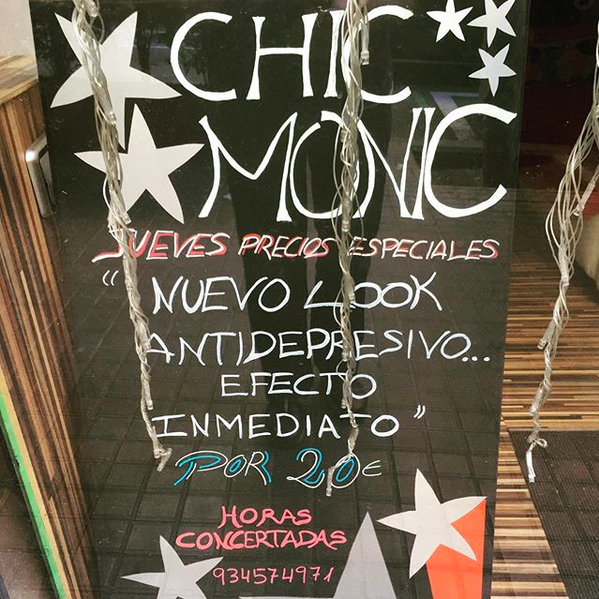 CHIC
MONIC
JUEVES PRECIOS ESPECIALES
" NUEVO LOOK
ANTIDEPRESIVO...
EFECTO
INMEDIATO "
POR 20€
HORAS
CONCERTADAS
934574971